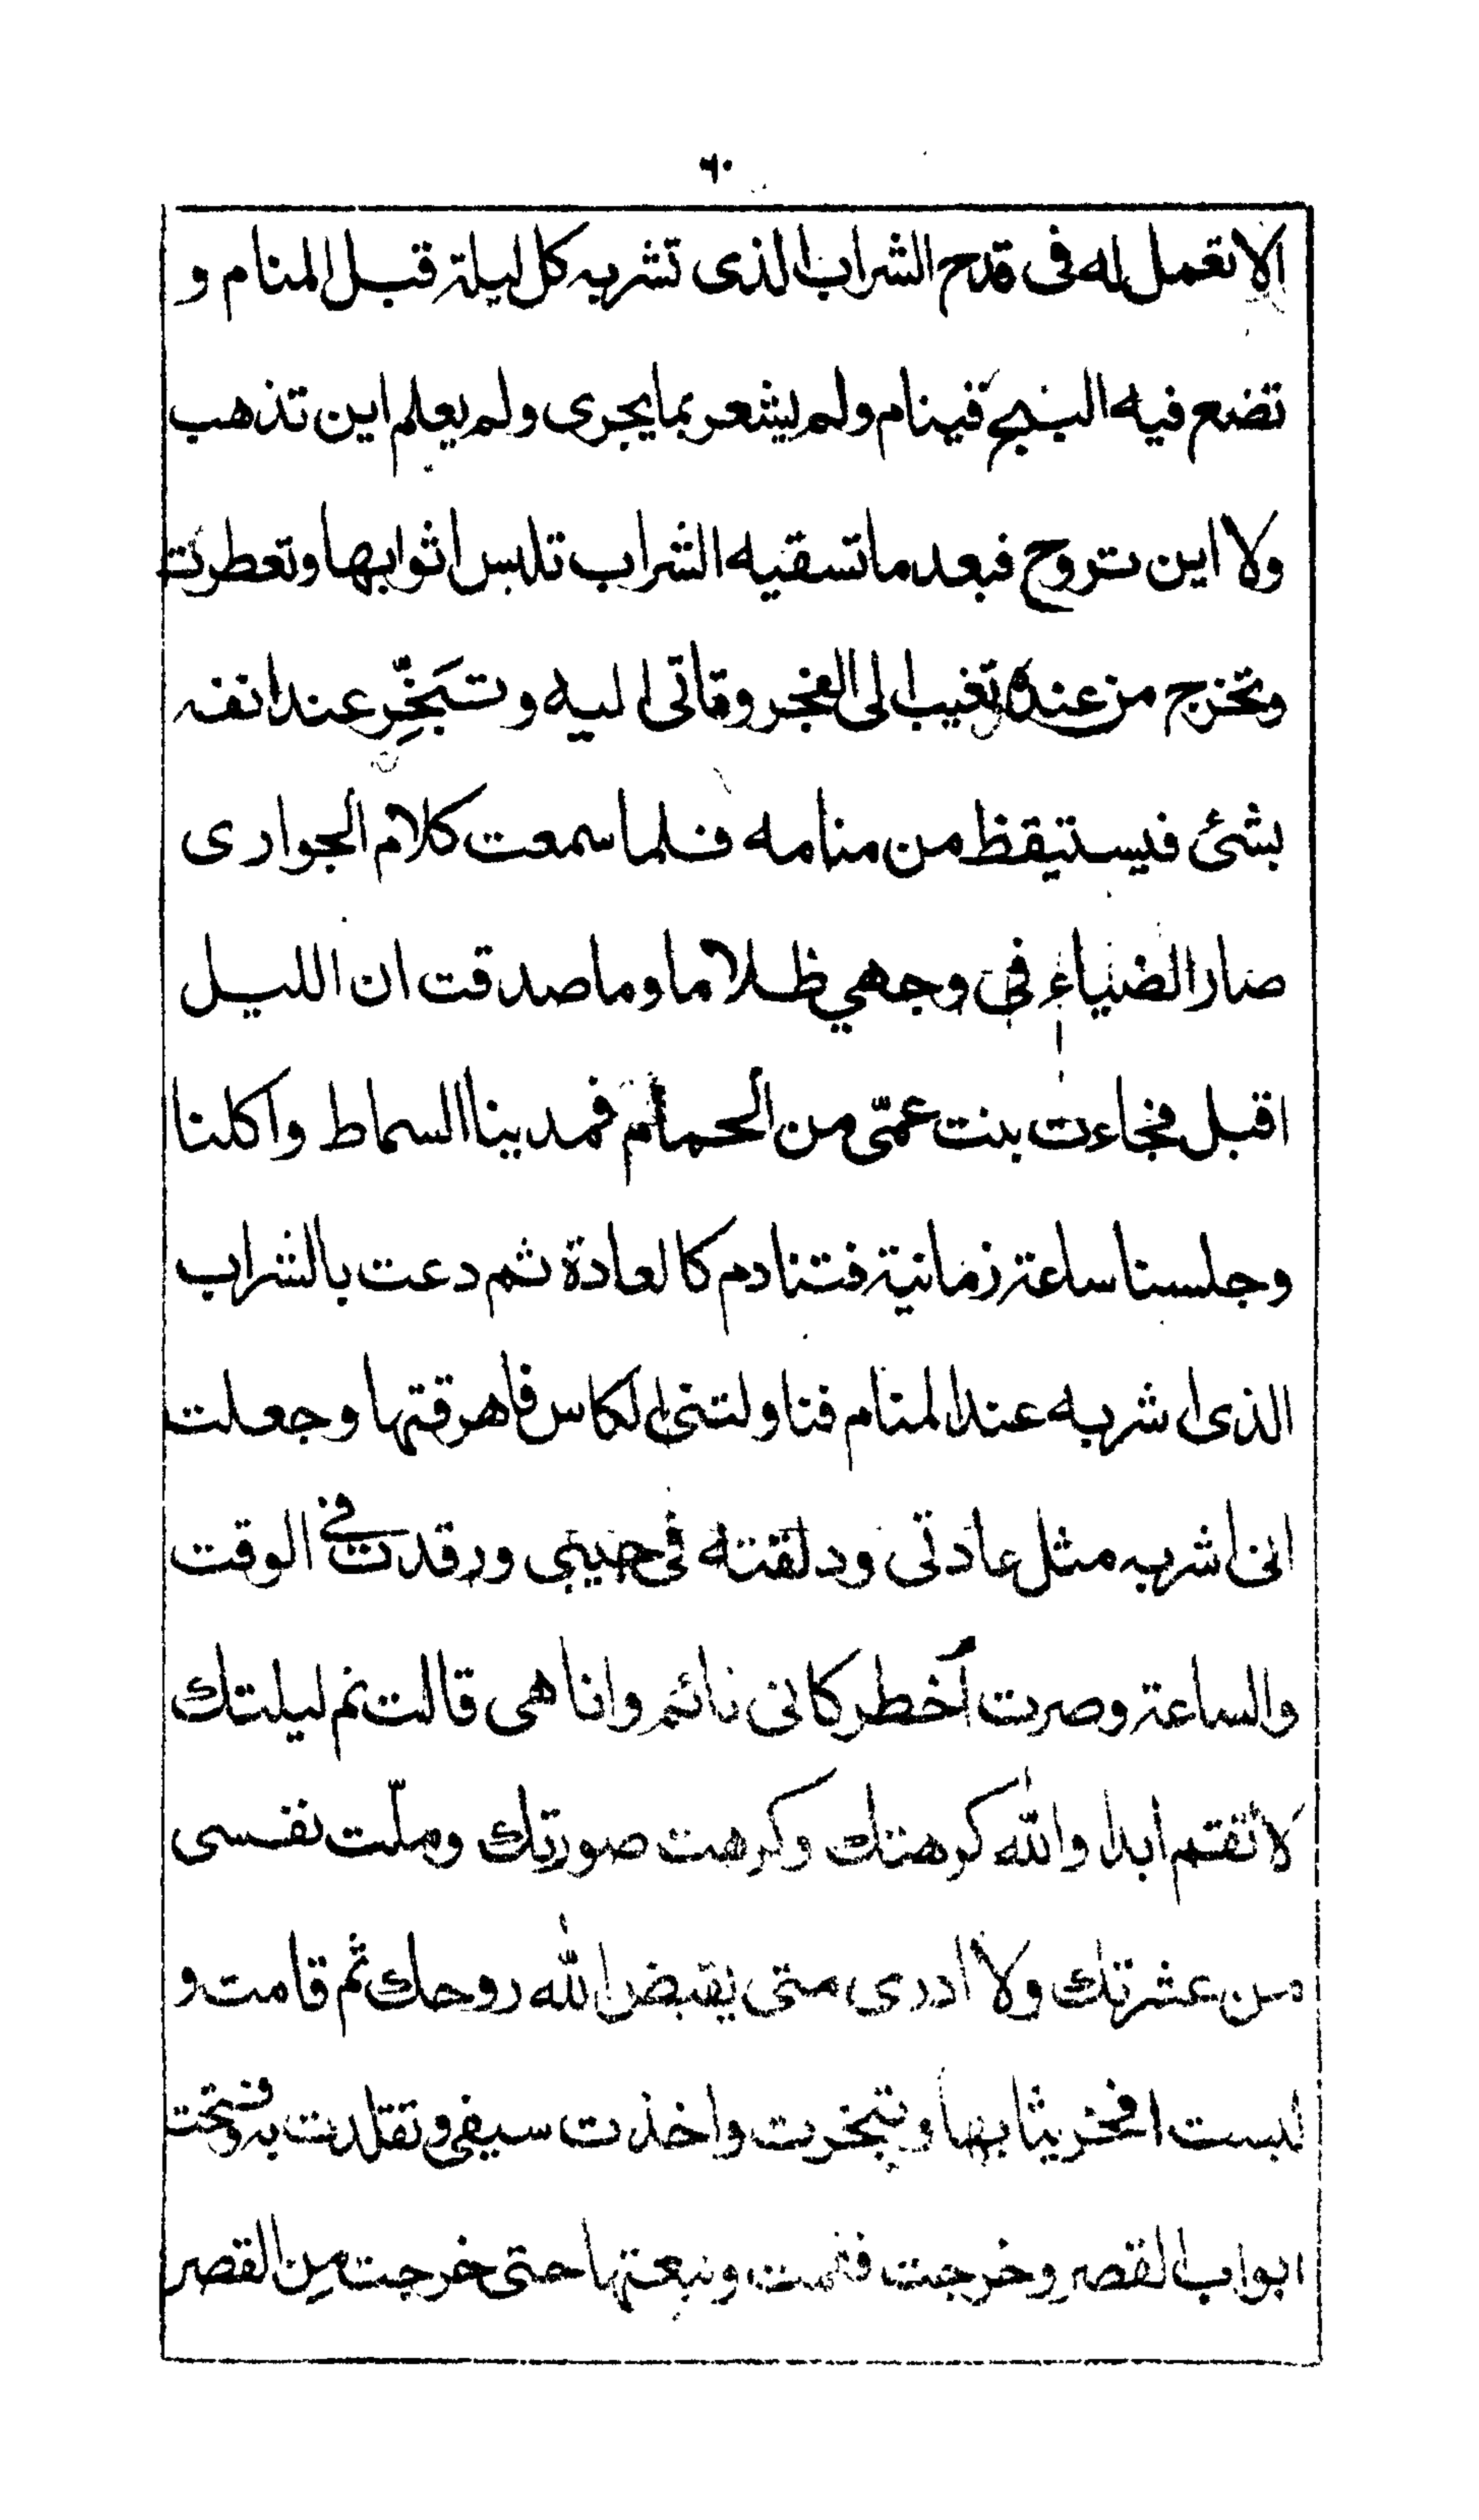 ٦٠
الا تعمل له فى قدح الشراب الذى تشربه كل ليلة قبل المنام و
تضع فيه البنج فينام ولم يشعر بما يجرى ولم يعلم اين تذهب
ولا اين تروح فبعد ما تسقيه الشراب تلبس اثوابها وتعطرت
وتخرج من عنده تغيب الى الفجر وتاتى اليه وتَبَخِّر عند انفه
بشئ فيستيقظ من منامه فلما سمعت كلام الجوارى
صار الضياء فى وجهي ظلاما وما صدقت ان الليل
اقبل فجاءت بنت عمّى من الحمام فمدينا السماط واكلنا
وجلسنا ساعة زمانية فتنادم كالعادة ثم دعت بالشراب
الذى اشربه عند المنام فناولتنى الكاس فاهرقتها وجعلت
انى اشربه مثل عادتى ودلقته فى جيبى ورقدت فى الوقت
والساعة وصرت اخطر كانى نائم واناهى قالت نم ليلتك
لا تقتم ابدا والله كرهتك وكرهت صورتك وملّت نفسى
من عشرتك ولا ادرى متى يقبض الله روحك ثم قامت و
لبست افخر ثيابها وتبخرت واخذت سيفى وتقلدت به وفتحت
ابواب القصر وخرجت فقمت وتبعتها حتى خرجت مِن القصر